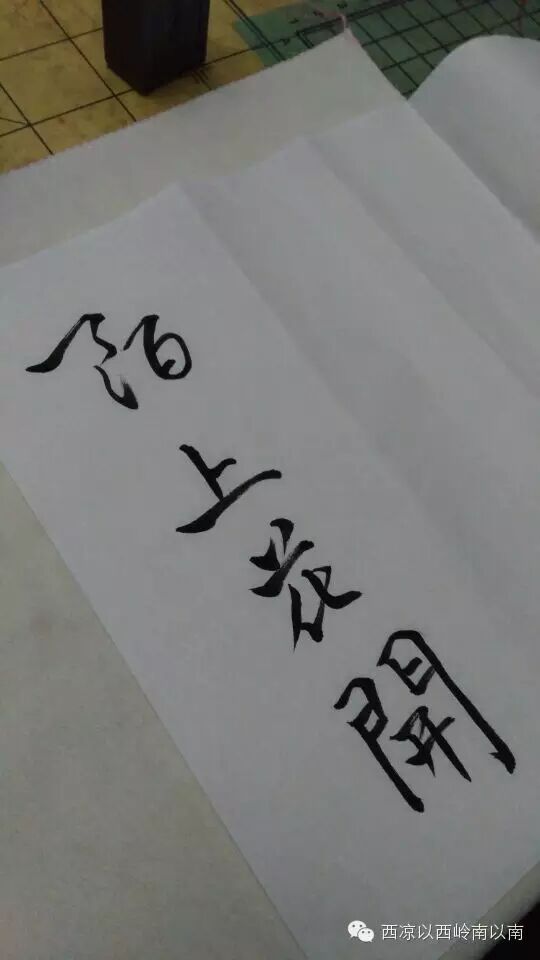 陌上花開
西凉以西岭南以南